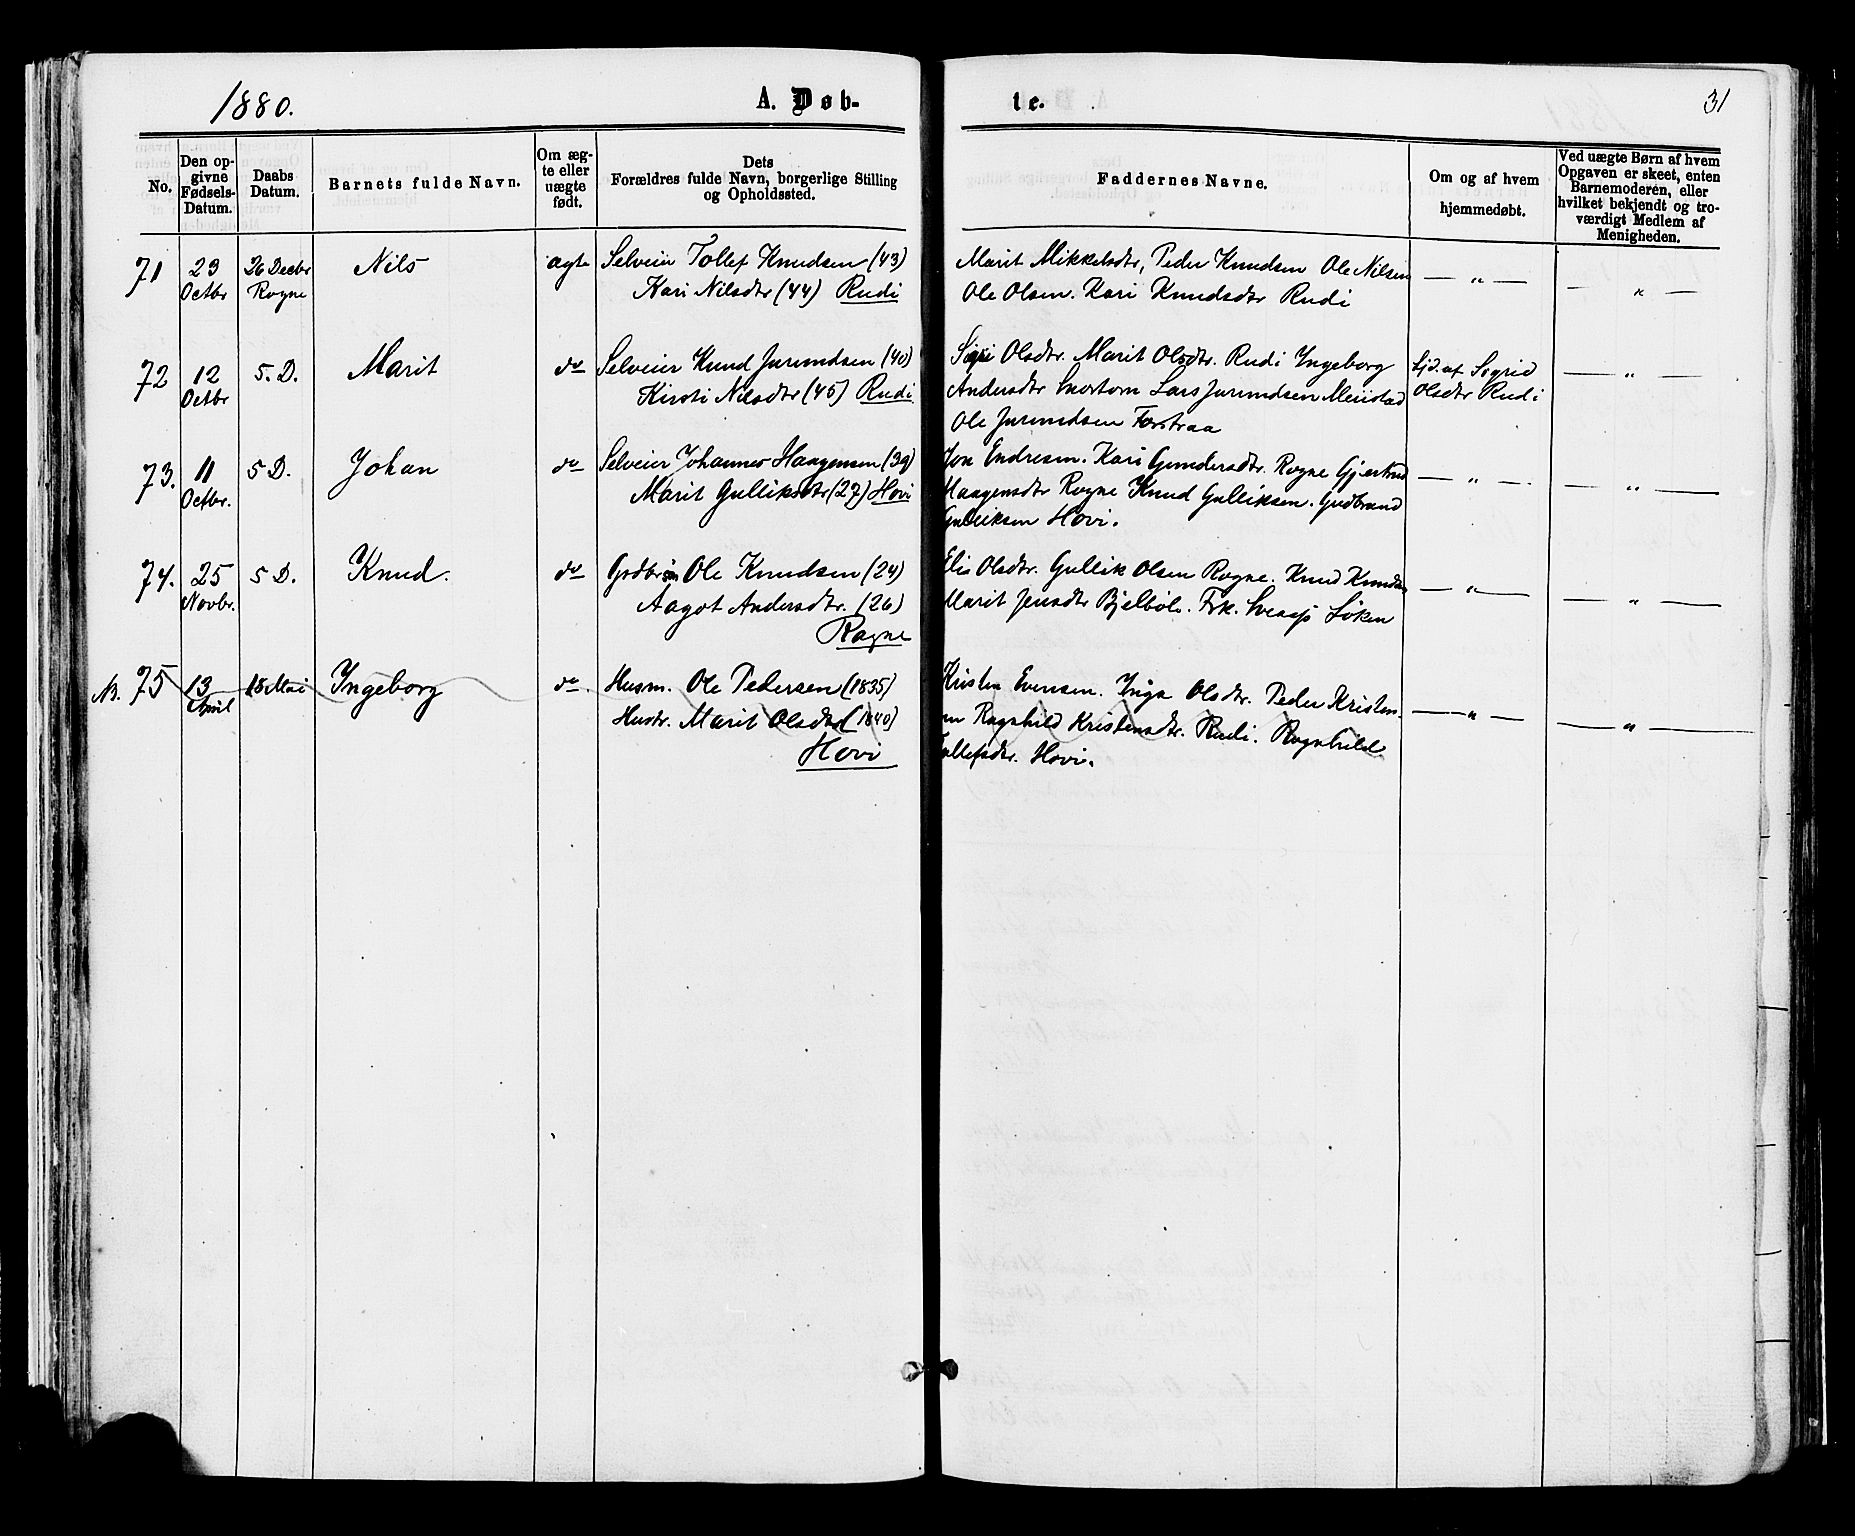 1880.
A. Døb-
te.
31
No.
Den op-
givne
Fødsels-
Datum.
Daabs
Datum.
Barnets fulde Navn.
Om æg-
te eller
uægte
født.
Dets
Forældres fulde Navn, borgerlige Stilling
og Opholdssted.
Faddernes Navne.
Om og af hvem
hjemmedøbt.
Ved uægte Børn af hvem
Opgaven er skeet, enten
Barnemoderen, eller
hvilket bekjendt og tro-
værdigt Medlem af
Menigheden.
71
29
Octbr
26 Decbr
Rogne
Nils
ægte
Selveier Tollef Knudsen (43)
Kari Nilsdtr (44) Rudi
Marit Mikkelsdtr, Peder Knudsen Ole Nilsen
Ole Olsen. Kari Knudsdtr Rudi
— " —
— " —
72
12
Octbr
S. D.
Marit
do
Selveier Knud Jurundsen (40)
Kirsti Nilsdtr (45) Rudi
Sigri Olsdtr. Marit Olsdtr. Rudi Ingeborg
Andersdtr Lars Jurundsen
Ole Jurundsen
Hjd. af Sigrid
Olsdtr Rudi
— " —
73.
11
Octbr.
S D.
Johan
do
Selveier Johannes Haagensen (39)
Marit Gulliksdtr (27) Hovi
Jon Endresen. Kari Gundersdtr. Rogne Gjertrud
Haagensdtr Rogne Knud Gulliksen. Gudbrand
Gulliksen Hovi.
— " —
— " —
74.
25
Novbr.
S D.
Knud.
do
Ole Knudsen (24)
Aagot Andersdtr. (26)
Rogne
Elis Olsdtr. Gullik Olsen Rogne. Knud Knudsen
Marit Jensdtr Bjelbøle. Løken
— " —
— " —
NB. 75
13
April
18 Mai
Ingeborg
do.
Husm. Ole Pedersen (1835)
Hustr. Marit Olsdtr (1840)
Hovi
Kristen Evensen. Inga Olsdtr. Peder Kristen-
sen Ragnhild Kristensdtr. Rudi. Ragnhild
Tollefsdtr. Hovi.
— " —
— " —